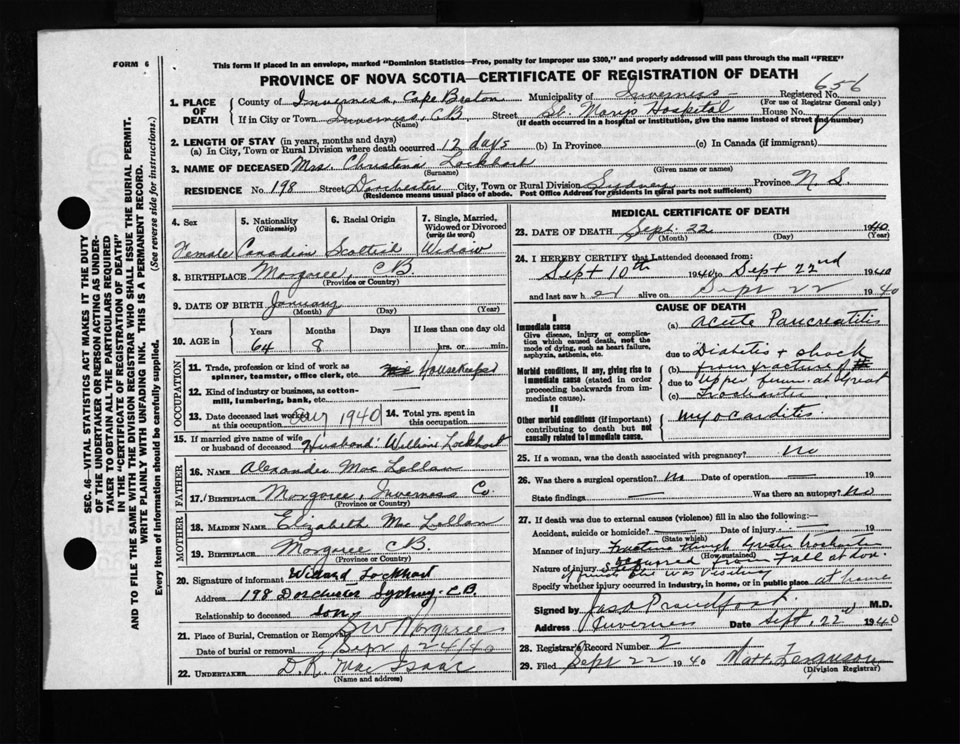 FORM 6
This form if placed in an envelope, marked "Dominion Statistics—Free, penalty for improper use $300," and properly addressed will pass through the mail "FREE"
PROVINCE OF NOVA SCOTIA—CERTIFICATE OF REGISTRATION OF DEATH
656
1. PLACE OF DEATH
County of Inverness, Cape Breton Municipality of Inverness Registered No.
(For use of Registrar General only)
If in City or Town Inverness, CB Street St. Marys Hospital House No.
(Name) (If death occurred in a hospital or institution, give the name instead of street and number)
2. LENGTH OF STAY (in years, months and days)
(a) In City, Town or Rural Division where death occurred 12 days (b) In Province (c) In Canada (if immigrant)
3. NAME OF DECEASED Mrs. Christina Lockhart
(Surname) (Given name or names)
RESIDENCE No. 198 Street Dorchester City, Town or Rural Division Sydney Province N. S.
(Residence means usual place of abode. Post Office Address for residents in rural parts not sufficient)
4. Sex 5. Nationality 6. Racial Origin 7. Single, Married, Widowed or Divorced
(Citizenship) (write the word)
Female Canadian Scottish Widow
8. BIRTHPLACE Margaree, CB
(Province or Country)
9. DATE OF BIRTH January
(Month) (Day) (Year)
10. AGE in Years Months Days If less than one day old
64 8 hrs. or min.
OCCUPATION
11. Trade, profession or kind of work as spinner, teamster, office clerk, etc. Housekeeper
12. Kind of industry or business, as cotton-mill, lumbering, bank, etc.
13. Date deceased last worked at this occupation 1940 14. Total yrs. spent in this occupation
15. If married give name of wife or husband of deceased Husband: William Lockhart
FATHER
16. NAME Alexander Mac Lellan
17. BIRTHPLACE Margaree, Inverness Co.
(Province or Country)
MOTHER
18. MAIDEN NAME Elizabeth Mc Lellan
19. BIRTHPLACE Margaree CB.
(Province or Country)
20. Signature of informant Lockhart
Address 198 Dorchester Sydney. C.B.
Relationship to deceased son
21. Place of Burial, Cremation or Removal S W Margaree
Date of burial or removal Sept 24/40
22. UNDERTAKER D.R. Mac Isaac
(Name and address)
MEDICAL CERTIFICATE OF DEATH
23. DATE OF DEATH Sept. 22 1940
(Month) (Day) (Year)
24. I HEREBY CERTIFY that I attended deceased from:
Sept 10th 1940 to Sept 22nd 1940
and last saw h er alive on Sept 22 1940
CAUSE OF DEATH
I
Immediate cause
Give disease, injury or complication which caused death, not the mode of dying, such as heart failure, asphyxia, asthenia, etc.
(a) Acute Pancreatitis
due to Diabetis + shock
Morbid conditions, if any, giving rise to immediate cause (stated in order proceeding backwards from immediate cause).
(b) from fracture of
due to Upper femur at Great
(c) Trochanter
II
Other morbid conditions (if important) contributing to death but not causally related to immediate cause.
Myocarditis.
25. If a woman, was the death associated with pregnancy? No
26. Was there a surgical operation? No Date of operation — 19
State findings — Was there an autopsy? No
27. If death was due to external causes (violence) fill in also the following:
Accident, suicide or homicide? Date of injury 19
(State which)
Manner of injury Fracture through Greater trochanter
(How sustained)
Nature of injury occurred from Fall at door
of friends she was visiting
Specify whether injury occurred in industry, in home, or in public place at home
Signed by Jas. Proudfoot M.D.
Address Inverness Date Sept. 22 1940
28. Registrar's Record Number 2
29. Filed Sept 22 1940 Matt. Ferguson
(Division Registrar)
SEC. 46—VITAL STATISTICS ACT MAKES IT THE DUTY
OF THE UNDERTAKER OR PERSON ACTING AS UNDER-
TAKER TO OBTAIN ALL THE PARTICULARS REQUIRED
IN THE "CERTIFICATE OF REGISTRATION OF DEATH"
AND TO FILE THE SAME WITH THE DIVISION REGISTRAR WHO SHALL ISSUE THE BURIAL PERMIT.
WRITE PLAINLY WITH UNFADING INK. THIS IS A PERMANENT RECORD.
Every item of Information should be carefully supplied. (See reverse side for instructions.)